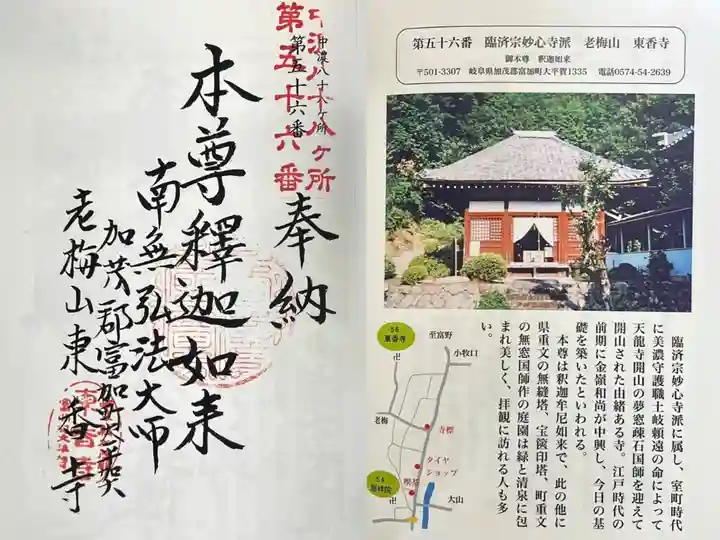 中濃八十八ケ所
第五十六番
中濃八十八ヶ所
第五十六番
奉納
本尊釋迦如来
南無弘法大師
加茂郡富加町大平賀
老梅山東香寺
第五十六番 臨済宗妙心寺派 老梅山 東香寺
御本尊 釈迦如来
〒501-3307 岐阜県加茂郡富加町大平賀1335 電話0574-54-2639
臨済宗妙心寺派に属し、室町時代
に美濃守護職土岐頼遠の命によって
天龍寺開山の夢窓疎石国師を迎えて
開山された由緒ある寺。江戸時代の
前期に金嶺和尚が中興し、今日の基
礎を築いたといわれる。
本尊は釈迦牟尼如来で、此の他に
県重文の無縫塔、宝篋印塔、町重文
の無窓国師作の庭園は緑と清泉に包
まれ美しく、拝観に訪れる人も多
い。
56
東香寺
至富野
小牧口
卍
老梅
寺標
タイヤ
ショップ
54
喫茶
大山
卍